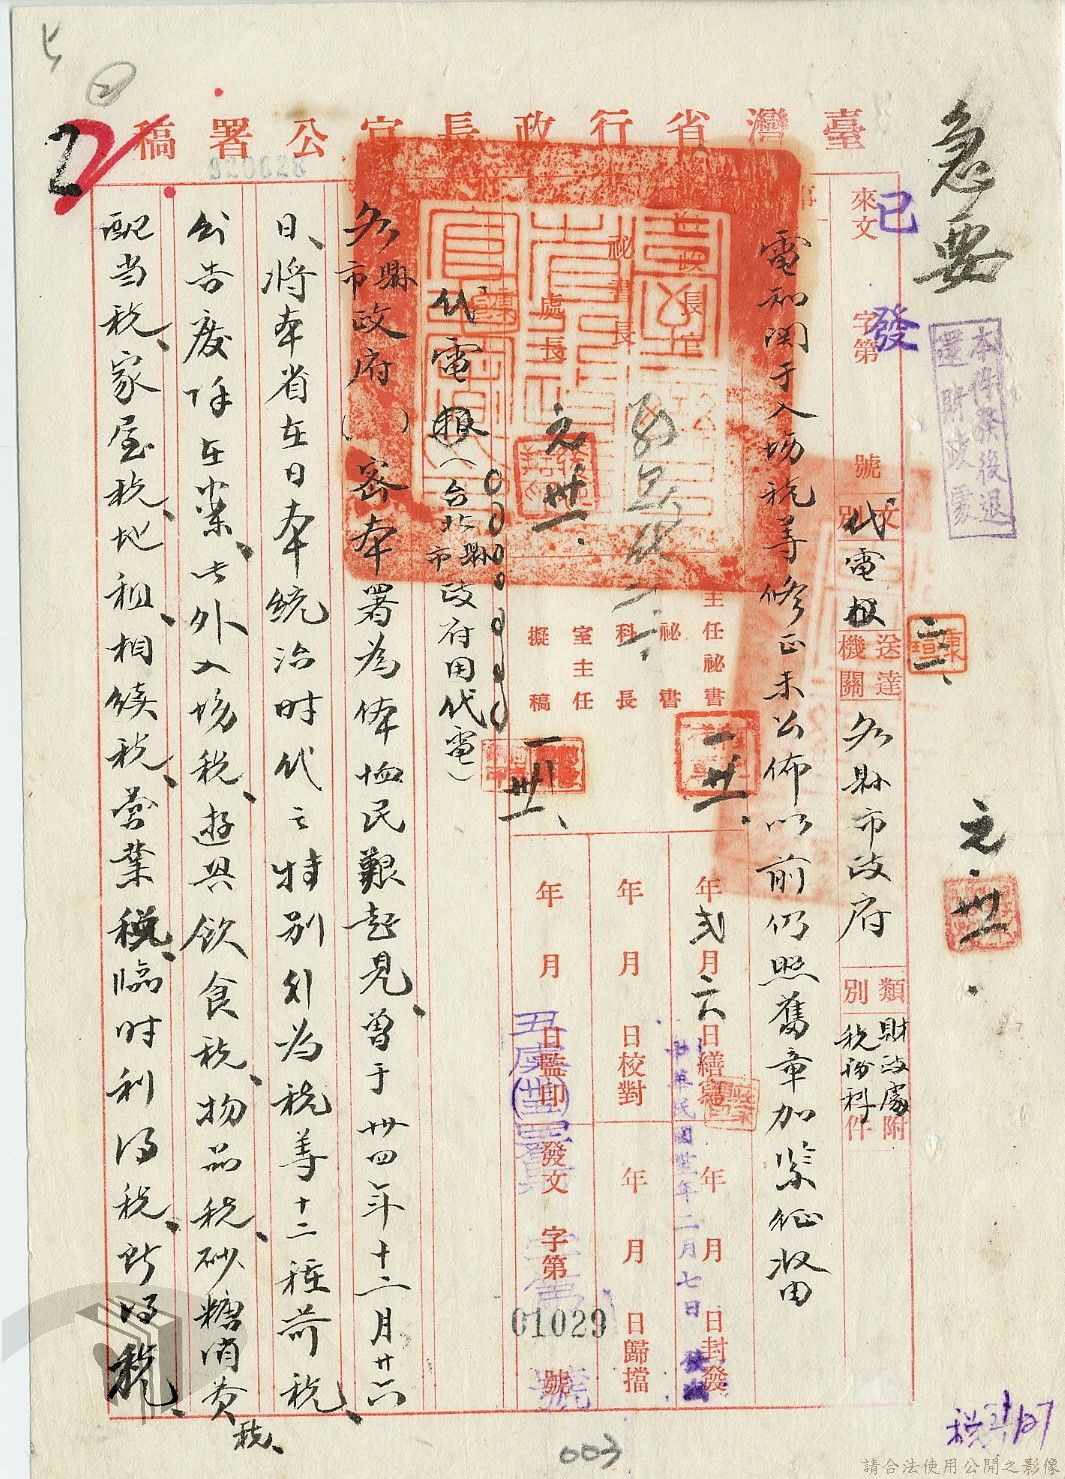 臺灣省行政長官公署稿
急要
已發
本件發後退還財政處
來文 字第 號
文別 代電
送達機關 各縣市政府
類別 財政處稅務科
附件
電知關于入場稅等修正未公佈以前仍照舊章加緊征收由
秘書長
處長
主任秘書
秘書
科長
室主任
擬稿
元卅一
一卅一
一卅一
元卅一
年弍月六日繕寫
年 月 日校對
年 月 日監印
年 月 日封發
年 月 日歸檔
發文 字第 號
中華民國 年二月七日
01029
代電報(台北縣市政府用代電)
各縣市政府( )密本署為体恤民艱起見、曾于卅四年十二月廿六
日、將本省在日本統治时代之特別行為稅等十二種苛稅、
公告廢除在案、此外入場稅、遊興飲食稅、物品稅、砂糖消費稅、
配当稅、家屋稅、地租、相続稅、營業稅、臨时利得稅、所得稅、
320628
003
請合法使用公開之影像